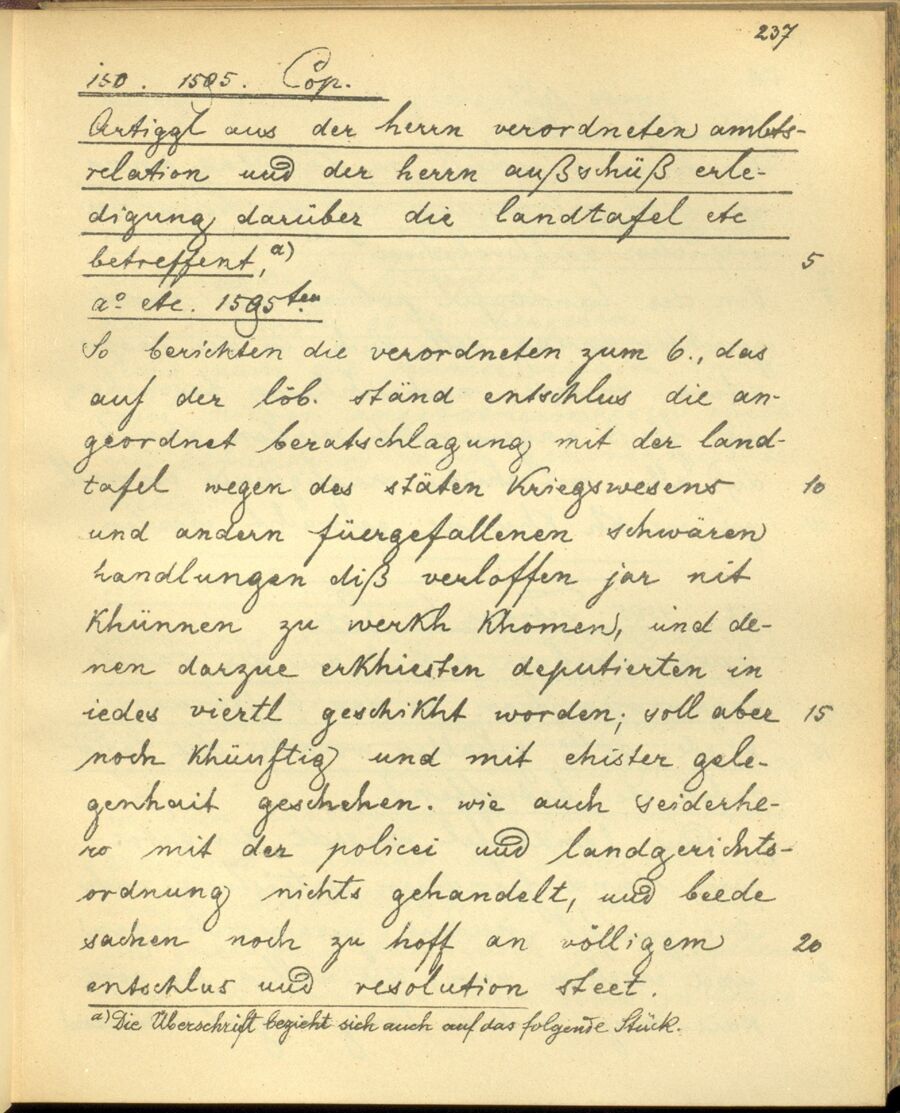 237
150. 1595. Cop.
Artiggl aus der herrn verordneten ambts-
relation und der herrn außschüß erle-
digung darüber die landtafel etc
betreffent,a)
5
ao etc. 1595ten
So berichten die verordneten zum 6., das
auf der löb. ständ entschlus die an-
geordnet beratschlagung mit der land-
tafel wegen des stäten kriegswesens
10
und andern füergefallenen schwären
handlungen diß verloffen jar nit
khünnen zu werkh khomen, und de-
nen darzue erkhiesten deputierten in
iedes viertl geschikht worden; soll aber
15
noch khünftig und mit ehister gele-
genhait geschehen. wie auch seiderhe-
ro mit der policei und landgerichts-
ordnung nichts gehandelt, und beede
sachen noch zu hoff an völligem
20
entschlus und resolution steet.
a) Die Überschrift bezieht sich auch auf das folgende Stück.